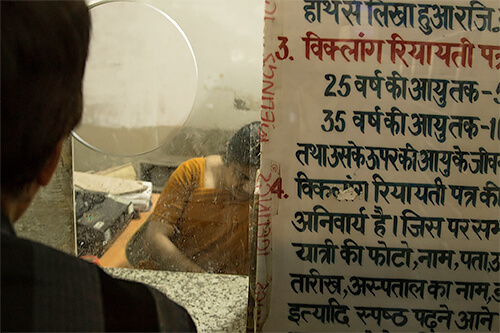 हाथ से लिखा हुआ रजि.
3. विकलांग रियायती पत्र
25 वर्ष की आयु तक -
35 वर्ष की आयु तक -
तथा उसके ऊपर की आयु के जीव
4. विकलांग रियायती पत्र की
अनिवार्य है। जिस पर सम
यात्री की फोटो, नाम, पता,
तारीख, अस्पताल का नाम,
इत्यादि स्पष्ठ पढ़ने आने